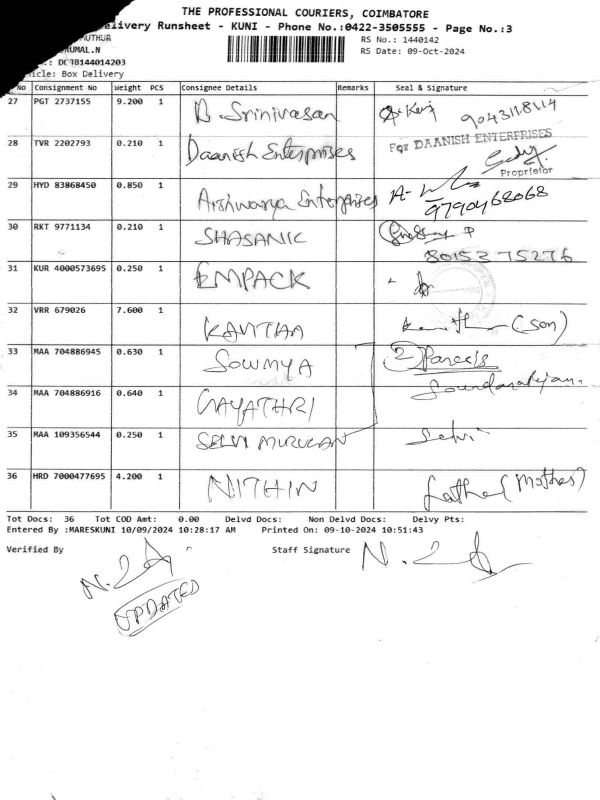 THE PROFESSIONAL COURIERS, COIMBATORE
elivery Runsheet - KUNI - Phone No.:0422-3505555 - Page No.:3
MUTHUR RS No.: 1440142
RUMAL.N RS Date: 09-Oct-2024
DC9B144014203
icle: Box Delivery
No Consignment No Weight PCS Consignee Details Remarks Seal & Signature
27 PGT 2737155 9.200 1 B Srinivasan 9043118114
28 TVR 2202793 0.210 1 Daanish Enterprises For DAANISH ENTERPRISES
Proprietor
29 HYD 83868450 0.850 1 Aishwarya Enterprises 9790468068
30 RKT 9771134 0.210 1 SHASANK
8015275276
31 KUR 4000573695 0.250 1 EMPACK
32 VRR 679026 7.600 1 KAVITHA (son)
33 MAA 704886945 0.630 1 SOWMYA 2) Parcels
Soundararajan.
34 MAA 704886916 0.640 1 GAYATHRI
35 MAA 109356544 0.250 1 SELVI MURUGAN Selvi
36 HRD 7000477695 4.200 1 NITHIN Latha (Mother)
Tot Docs: 36 Tot COD Amt: 0.00 Delvd Docs: Non Delvd Docs: Delvy Pts:
Entered By :MARESKUNI 10/09/2024 10:28:17 AM Printed On: 09-10-2024 10:51:43
Verified By Staff Signature
UPDATED